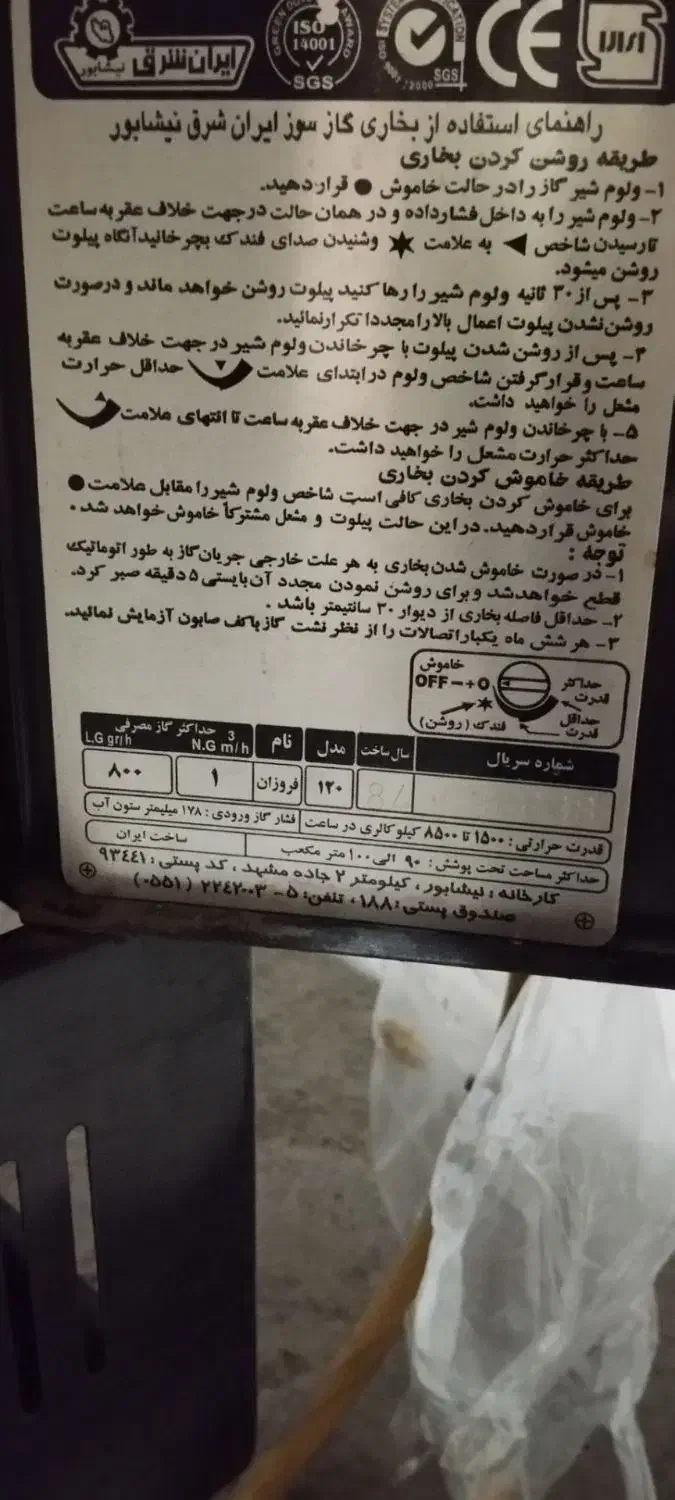 ایران شرق
نیشابور
GREEN AWARD
ISO
14001
SGS
SYSTEM CERTIFICATION
ISO 9001/2000
SGS
CE
راهنمای استفاده از بخاری گاز سوز ایران شرق نیشابور
طریقه روشن کردن بخاری
۱- ولوم شیر گاز را در حالت خاموش ● قرار دهید.
۲- ولوم شیر را به داخل فشار داده و در همان حالت در جهت خلاف عقربه ساعت
تا رسیدن شاخص ◀ به علامت ✶ وشنیدن صدای فندک بچرخانید آنگاه پیلوت
روشن میشود.
۳- پس از ۳۰ ثانیه ولوم شیر را رها کنید پیلوت روشن خواهد ماند و درصورت
روشن نشدن پیلوت اعمال بالا را مجددا تکرار نمائید.
۴- پس از روشن شدن پیلوت با چرخاندن ولوم شیر در جهت خلاف عقربه
ساعت و قرار گرفتن شاخص ولوم در ابتدای علامت حداقل حرارت
مشعل را خواهید داشت.
۵- با چرخاندن ولوم شیر در جهت خلاف عقربه ساعت تا انتهای علامت
حداکثر حرارت مشعل را خواهید داشت.
طریقه خاموش کردن بخاری
برای خاموش کردن بخاری کافی است شاخص ولوم شیر را مقابل علامت ●
خاموش قرار دهید. در این حالت پیلوت و مشعل مشترکاً خاموش خواهد شد.
توجه :
۱- در صورت خاموش شدن بخاری به هر علت خارجی جریان گاز به طور اتوماتیک
قطع خواهد شد و برای روشن نمودن مجدد آن بایستی ۵ دقیقه صبر کرد.
۲- حداقل فاصله بخاری از دیوار ۳۰ سانتیمتر باشد .
۳- هر شش ماه یکبار اتصالات را از نظر نشت گاز با کف صابون آزمایش نمائید.
خاموش
OFF
حداکثر
قدرت
حداقل
قدرت
فندک (روشن)
شماره سریال
سال ساخت
مدل
نام
حداکثر گاز مصرفی
N.G m³/h
L.G gr/h
۱۲۰
فروزان
۱
۸۰۰
قدرت حرارتی : ۱۵۰۰ تا ۸۵۰۰ کیلو کالری در ساعت
فشار گاز ورودی : ۱۷۸ میلیمتر ستون آب
حداکثر مساحت تحت پوشش : ۹۰ الی ۱۰۰ متر مکعب
ساخت ایران
کارخانه : نیشابور، کیلومتر ۲ جاده مشهد ، کد پستی : ۹۳۴۴۱
صندوق پستی : ۱۸۸ ، تلفن: ۵ - ۲۲۴۲۰۰۳ (۰۵۵۱)